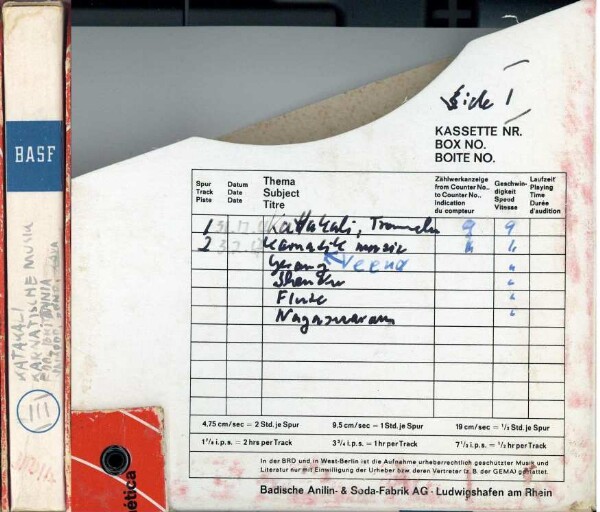 BASF
KATAKALI
KARNATISCHE MUSIK
III
Side 1
KASSETTE NR.
BOX NO.
BOITE NO.
Spur Track Piste
Datum Date Date
Thema Subject Titre
Zählwerkanzeige from Counter No... to Counter No.. Indication du compteur
Geschwin- digkeit Speed Vitesse
Laufzeit Playing Time Durée d'audition
1 Kathakali, Trommeln 9 9
2 Karnatik music
Veena
Flute
Nagaswaram
4,75 cm/sec = 2 Std. je Spur 9,5 cm/sec = 1 Std. je Spur 19 cm/sec = ½ Std. je Spur
1⅞ i.p.s. = 2 hrs per Track 3¾ i.p.s. = 1 hr per Track 7½ i.p.s. = ½ hr per Track
In der BRD und in West-Berlin ist die Aufnahme urheberrechtlich geschützter Musik und
Literatur nur mit Einwilligung der Urheber bzw. deren Vertreter (z. B. der GEMA) gestattet.
Badische Anilin- & Soda-Fabrik AG · Ludwigshafen am Rhein
ética